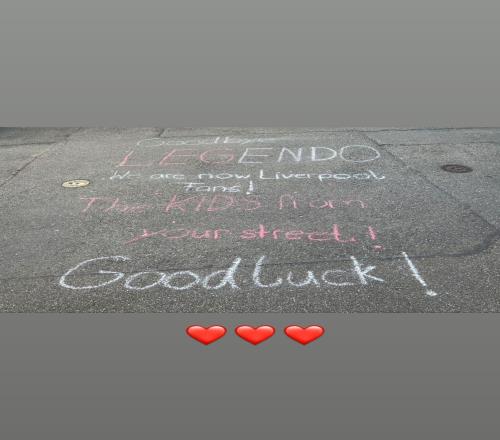 Goodbye
LEGENDO
We are now Liverpool
Fans!
The KIDS from
your street!
Good luck!